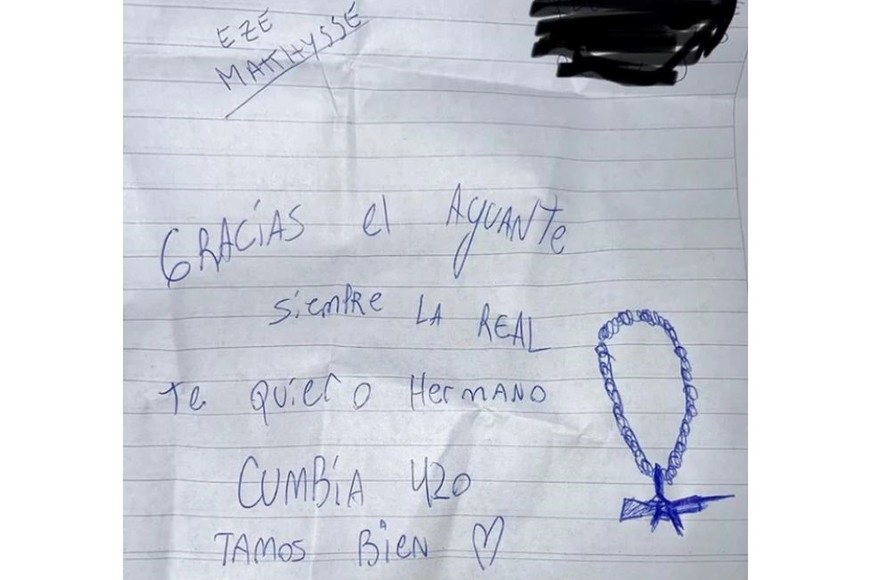 EZE
MATTHYSSE
GRACÍAS el AGUANTE
siempRe LA REAL
te quiero HermANO
CUMBÍA 420
TAMOS BIEN ♡